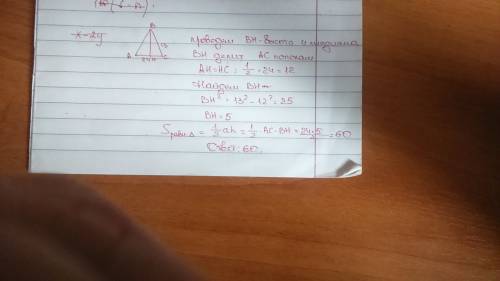 x-2y
B
13
A 24 H C
проводим BH-высота и медиана
BH делит AC пополам
AH=HC= 1/2 · 24 = 12
Найдем BH
BH² = 13² - 12² = 25
BH = 5
S равн Δ = 1/2 ah = 1/2 AC · BH = 24·5/2 = 60
Ответ: 60.